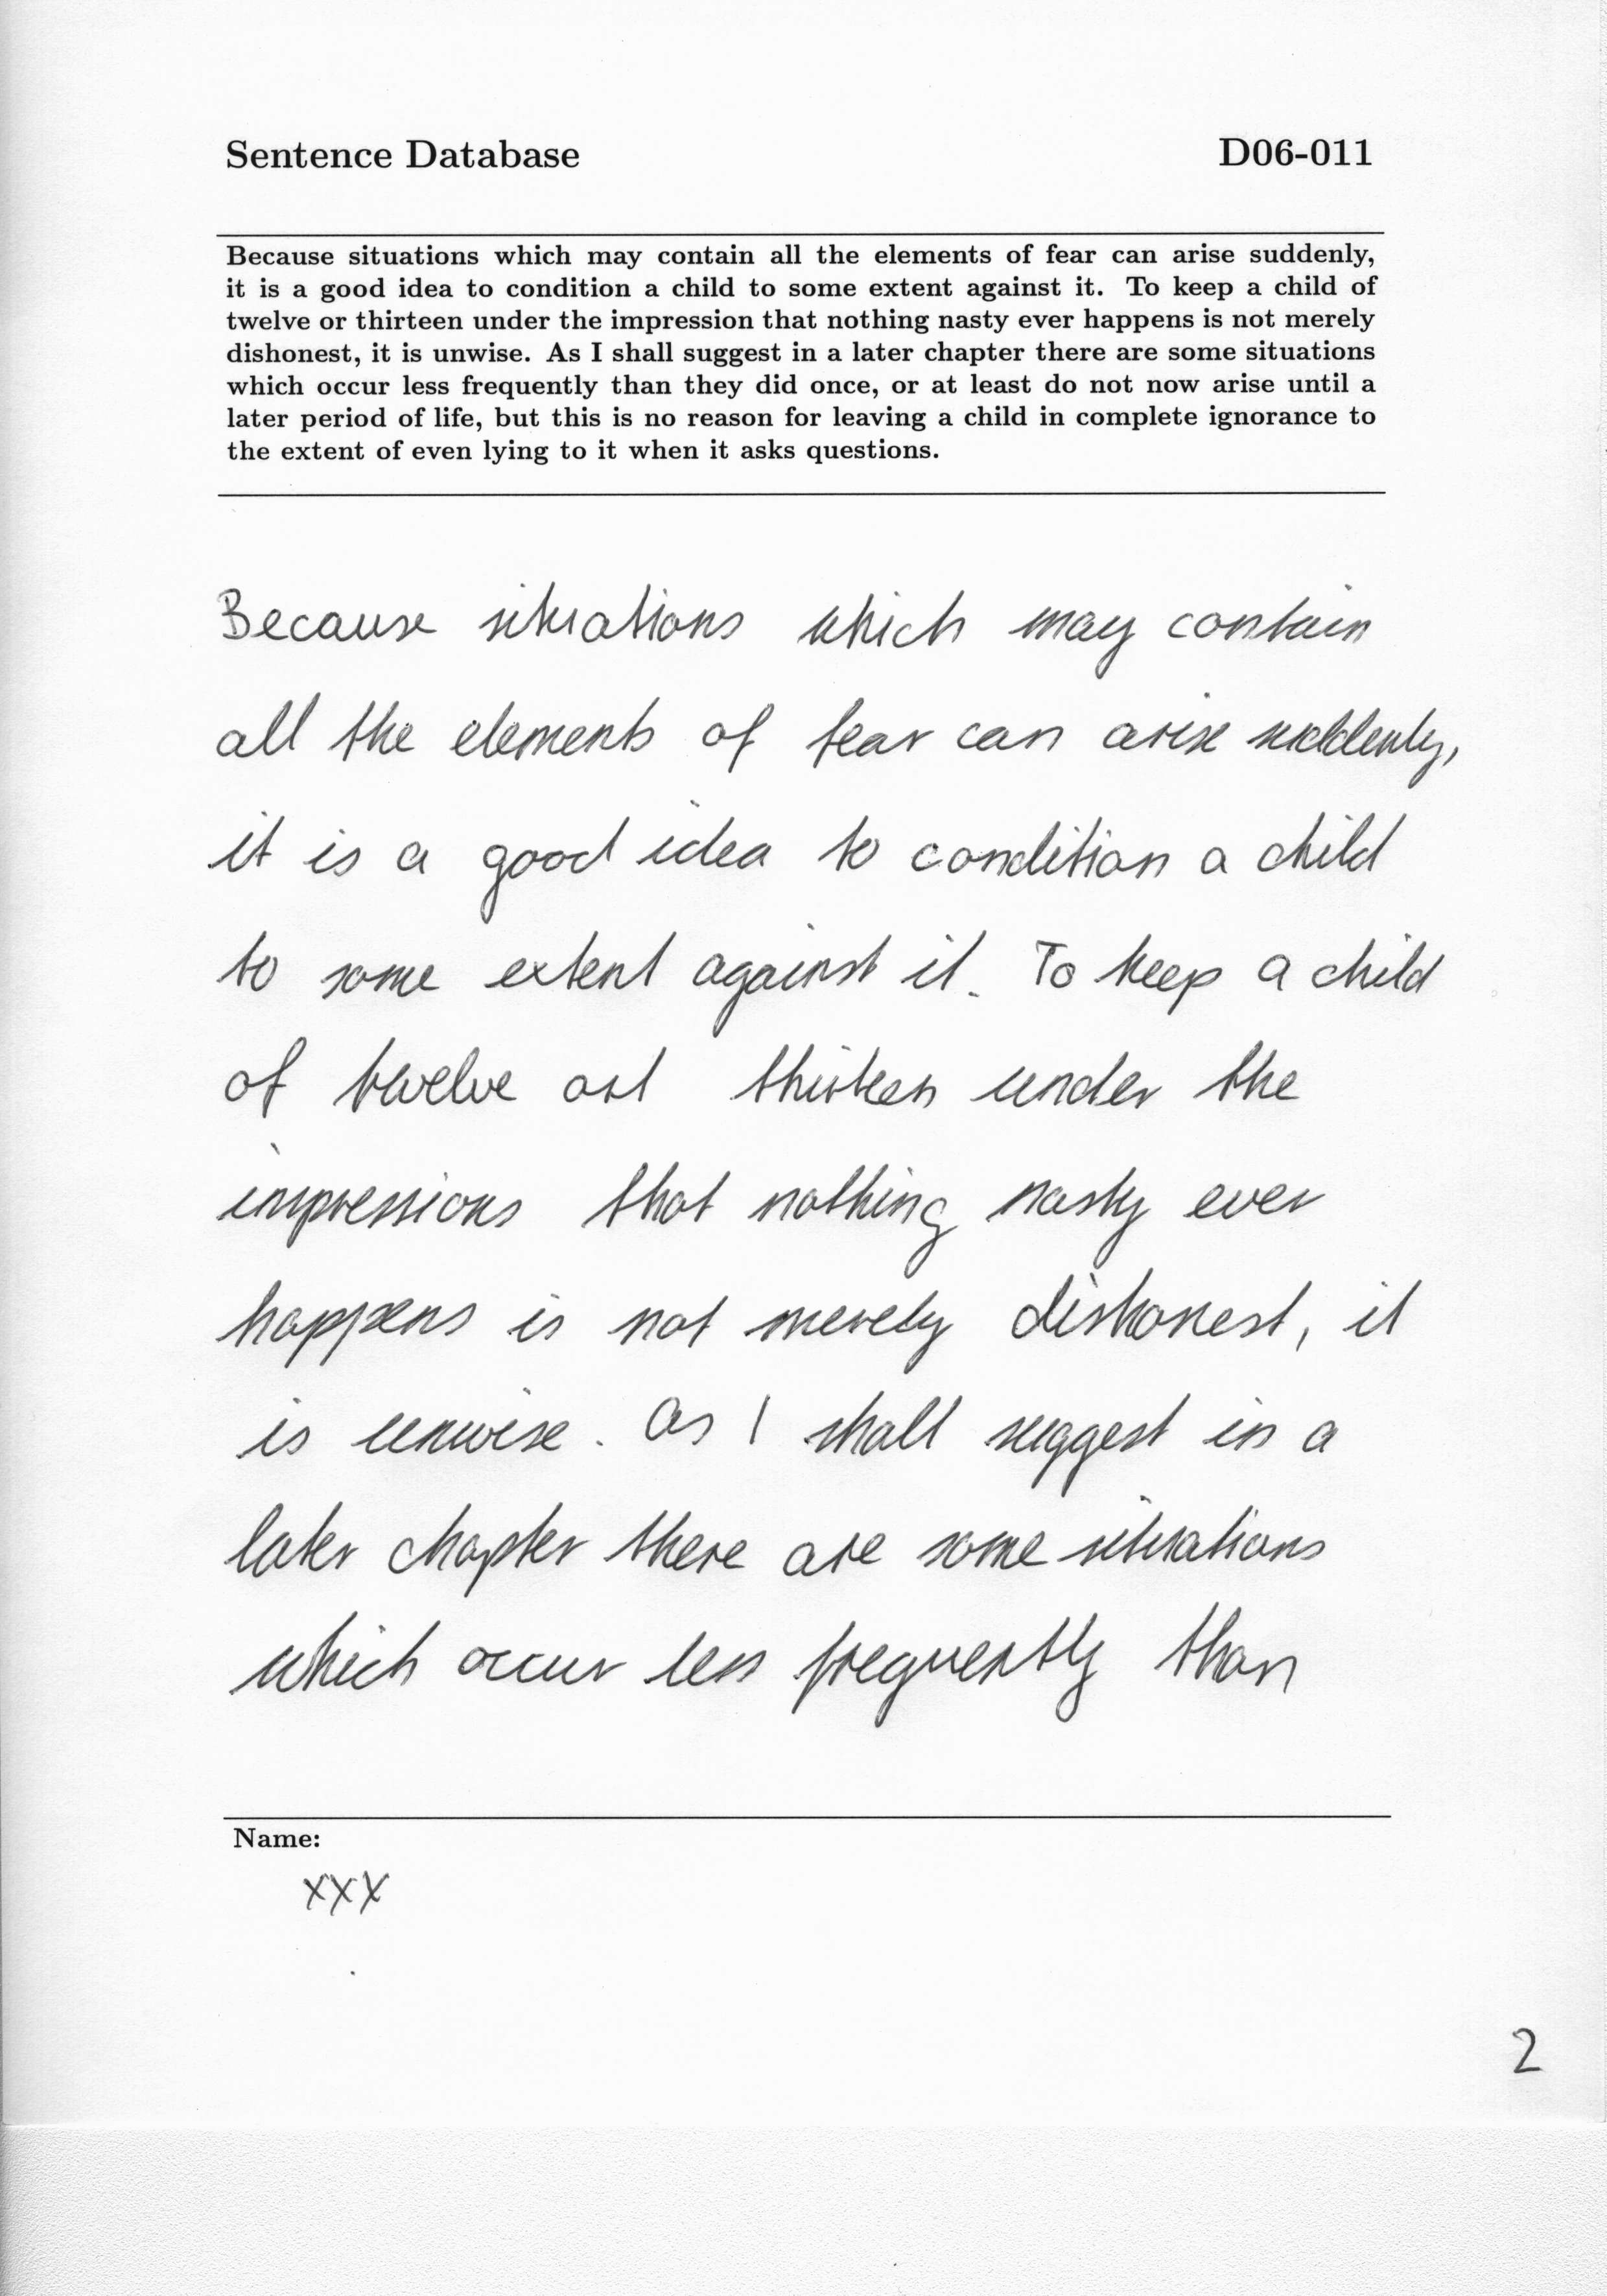 Sentence Database D06-011
Because situations which may contain all the elements of fear can arise suddenly,
it is a good idea to condition a child to some extent against it. To keep a child of
twelve or thirteen under the impression that nothing nasty ever happens is not merely
dishonest, it is unwise. As I shall suggest in a later chapter there are some situations
which occur less frequently than they did once, or at least do not now arise until a
later period of life, but this is no reason for leaving a child in complete ignorance to
the extent of even lying to it when it asks questions.
Because situations which may contain
all the elements of fear can arise suddenly,
it is a good idea to condition a child
to some extent against it. To keep a child
of twelve ort thirteen under the
impressions that nothing nasty ever
happens is not merely dishonest, it
is unwise. As I shall suggest in a
later chapter there are some situations
which occur less frequently than
Name:
XXX
2